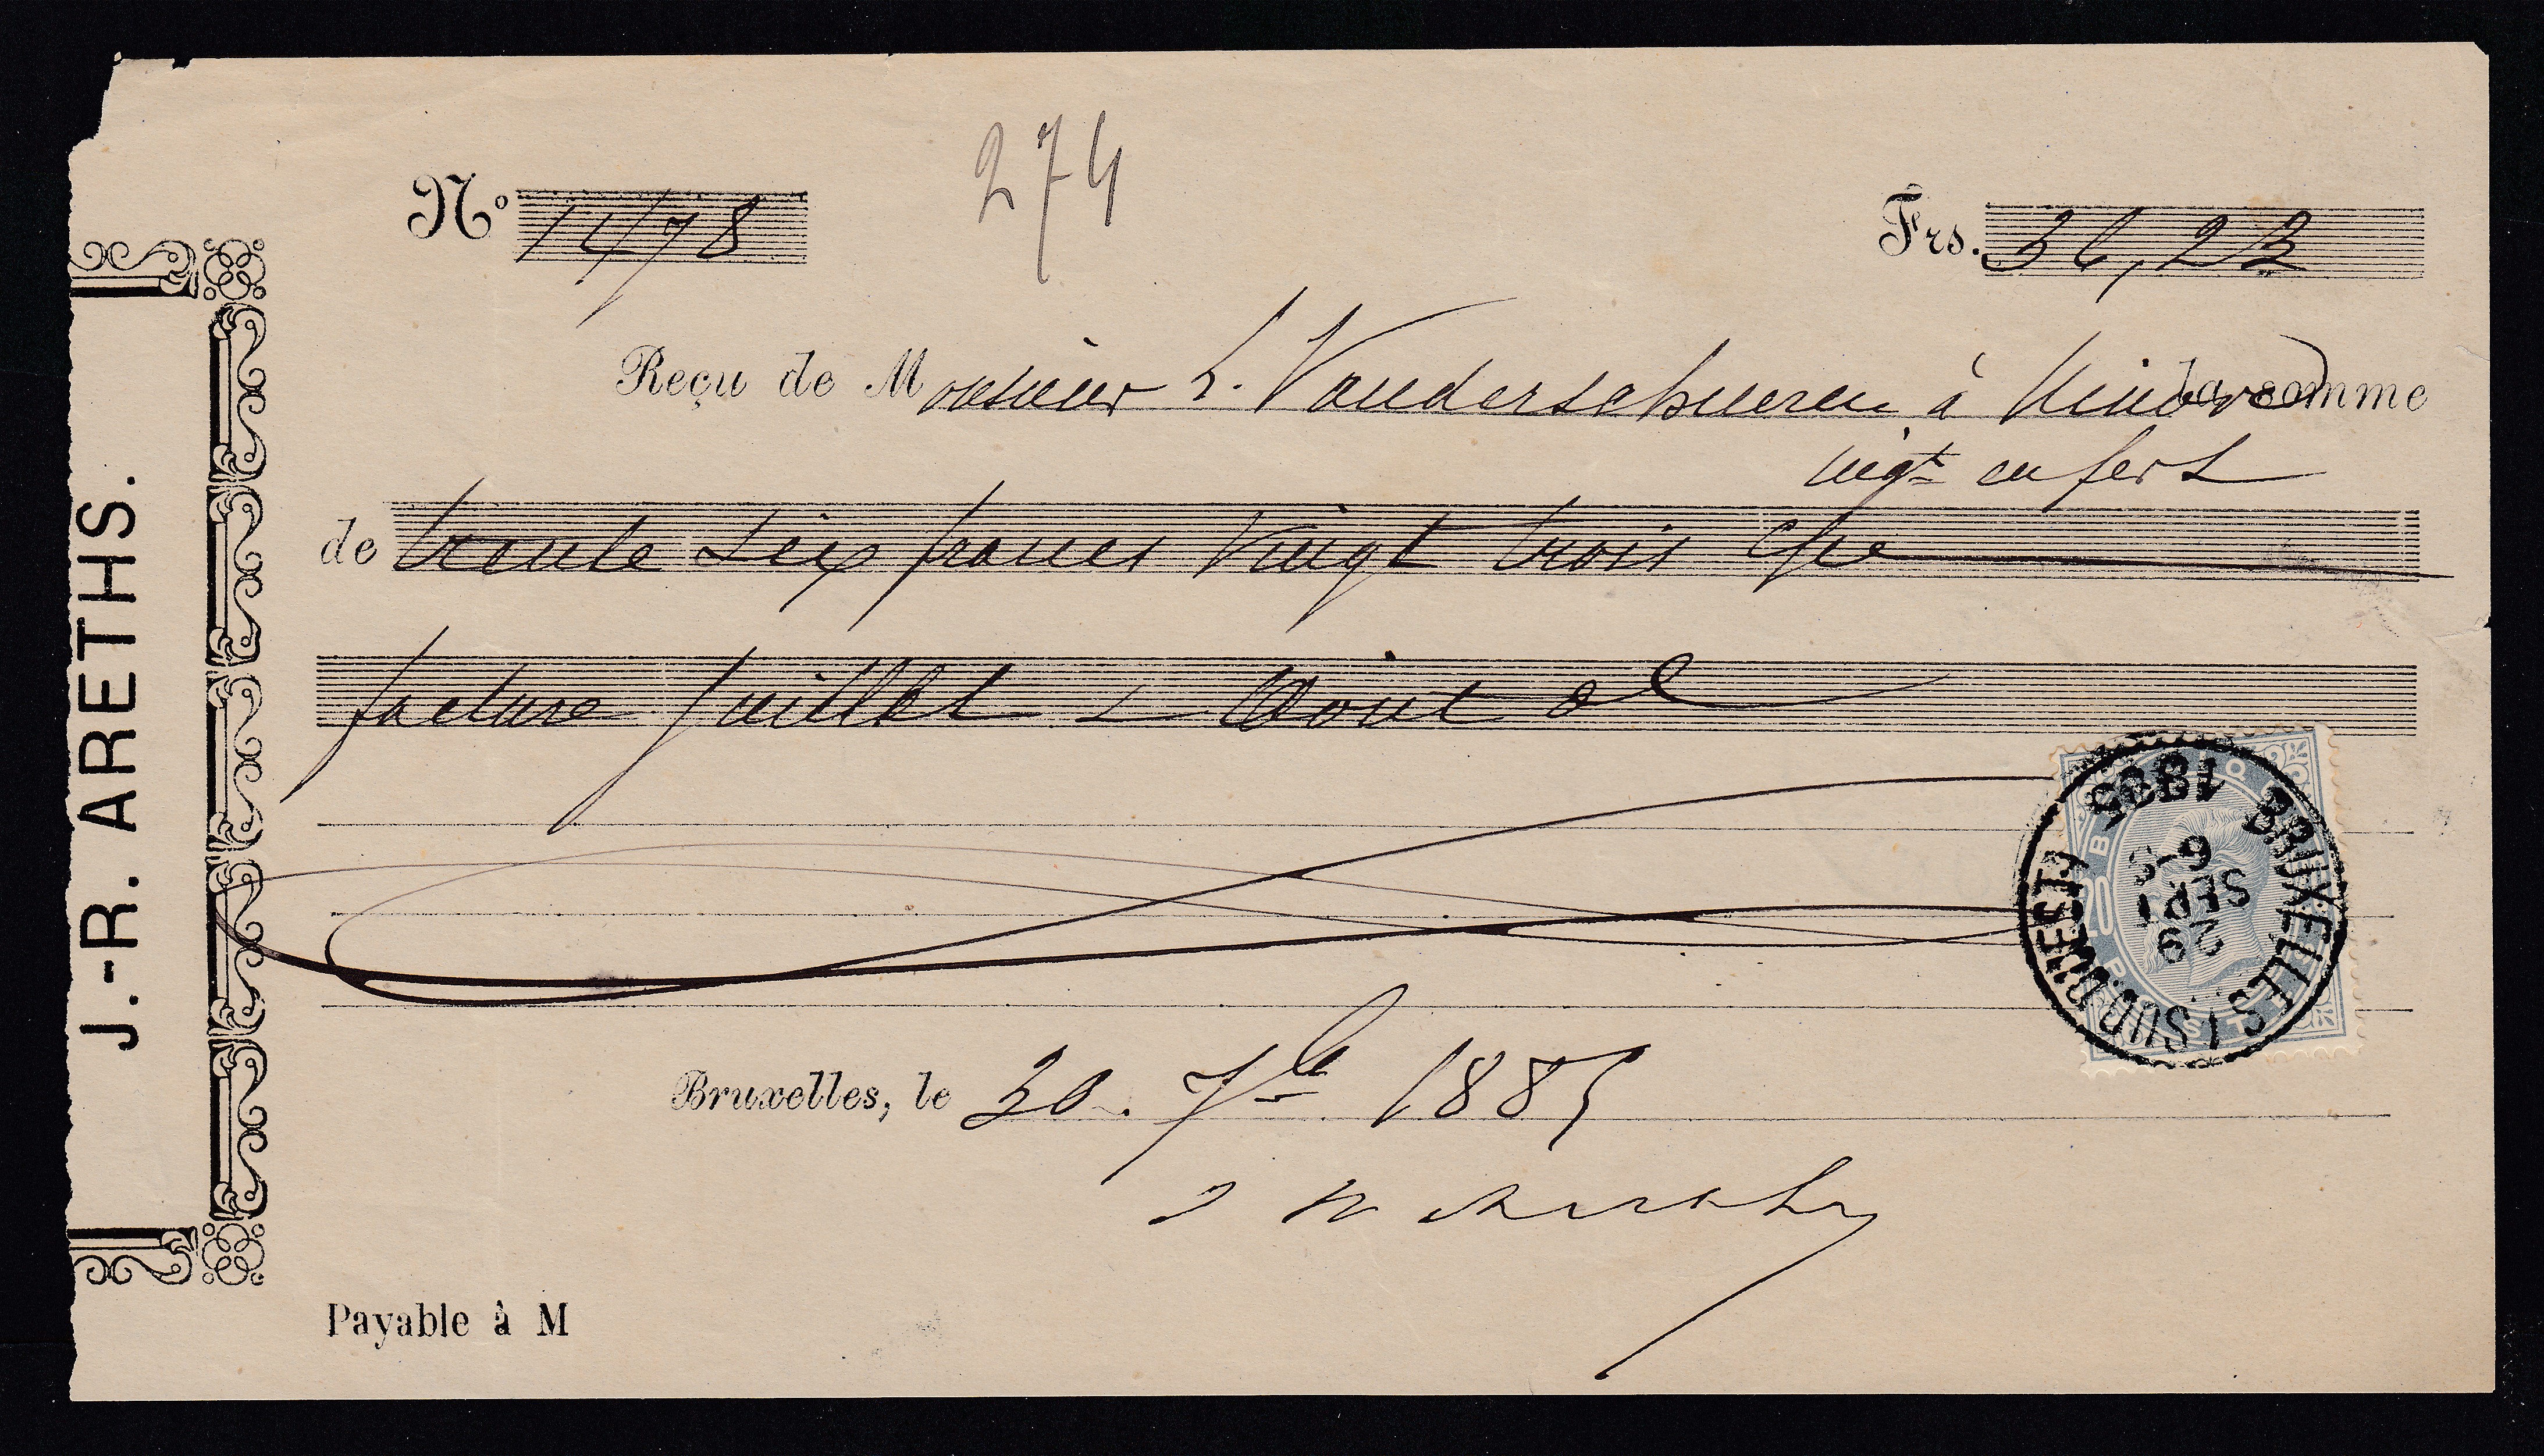 J.-R. ARETHS.
274
Nº 1478
Frs. 36,23
Reçu de Monsieur L. Vanderschueren à Ninove la somme
en fers
de trente six francs vingt trois cme
facture Juillet & Août
1885
BRUXELLES (SUD.OUEST)
6-S
SEPT
29
20
Bruxelles, le 30. 7bre 1885
Payable à M